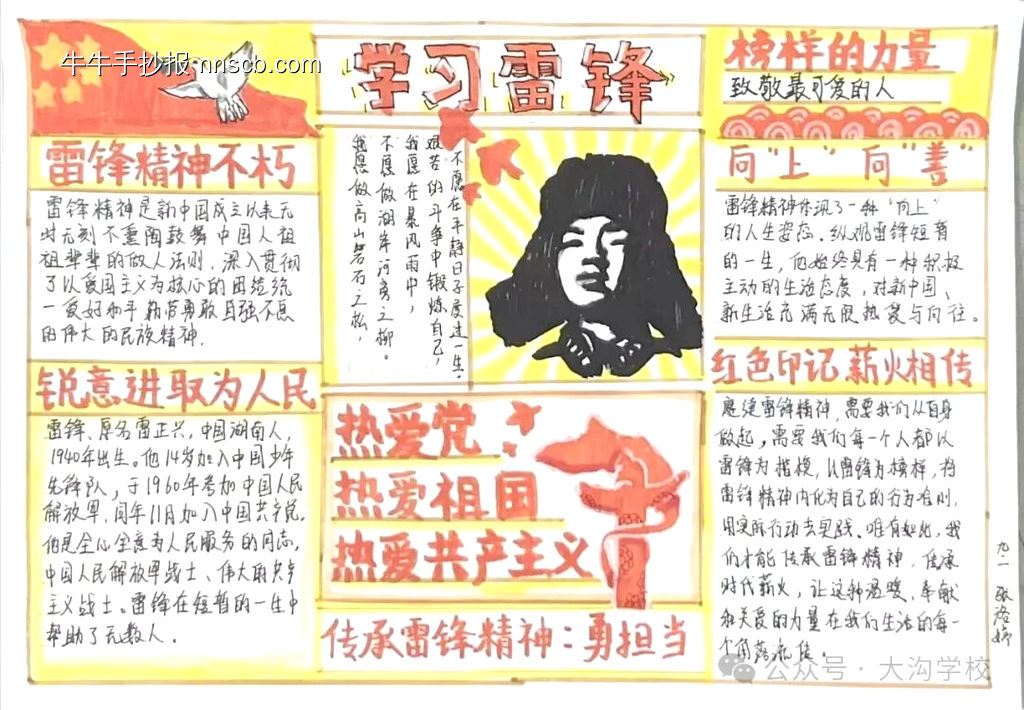 牛牛手抄报-nnscb.com
学习雷锋
榜样的力量
致敬最可爱的人
雷锋精神不朽
雷锋精神是新中国成立以来无
时无刻不熏陶鼓舞中国人祖
祖辈辈的做人法则，深入贯彻
了以爱国主义为核心的团结统
一爱好和平勤劳勇敢自强不息
的伟大的民族精神.
锐意进取为人民
雷锋、原名雷正兴，中国湖南人，
1940年出生。他14岁加入中国少年
先锋队，于1960年参加中国人民
解放军，同年11月加入中国共产党，
他是全心全意为人民服务的同志，
中国人民解放军战士、伟大的共产
主义战士。雷锋在短暂的一生中
帮助了无数人.
不愿在平静日子度过一生。
艰苦的斗争中锻炼自己，
我愿在暴风雨中，
不愿做湖岸河旁之柳。
我愿做高山岩石之松，
热爱党
热爱祖国
热爱共产主义
传承雷锋精神：勇担当
向“上”向“善”
雷锋精神体现了一种“向上”
的人生姿态.纵观雷锋短暂
的一生，他始终具有一种积极
主动的生活态度，对新中国、
新生活充满无限热爱与向往。
红色印记薪火相传
雷锋精神，需要我们从自身
做起，需要我们每一个人都以
雷锋为楷模，以雷锋为榜样，将
雷锋精神内化为自己的行为准则，
用实际行动去实践、唯有如此，我
们才能传承雷锋精神，传承
时代薪火，让这种温暖、奉献
和关爱的力量在我们生活的每一
个角落流传。
九.一
公众号·大沟学校